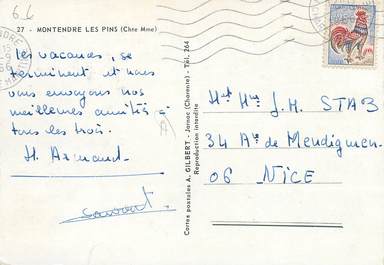 6L
27 - MONTENDRE LES PINS (Chte Mme)
les vacances, se
terminent et nous
vous envoyons nos
meilleures amitiés à
tous les trois.
H. Armand
Cartes postales A. GILBERT - Jarnac (Charente) - Tél. 264
Reproduction interdite
Mt Mme J.H. STAB
34 Ave de Mendiguren
06 NICE